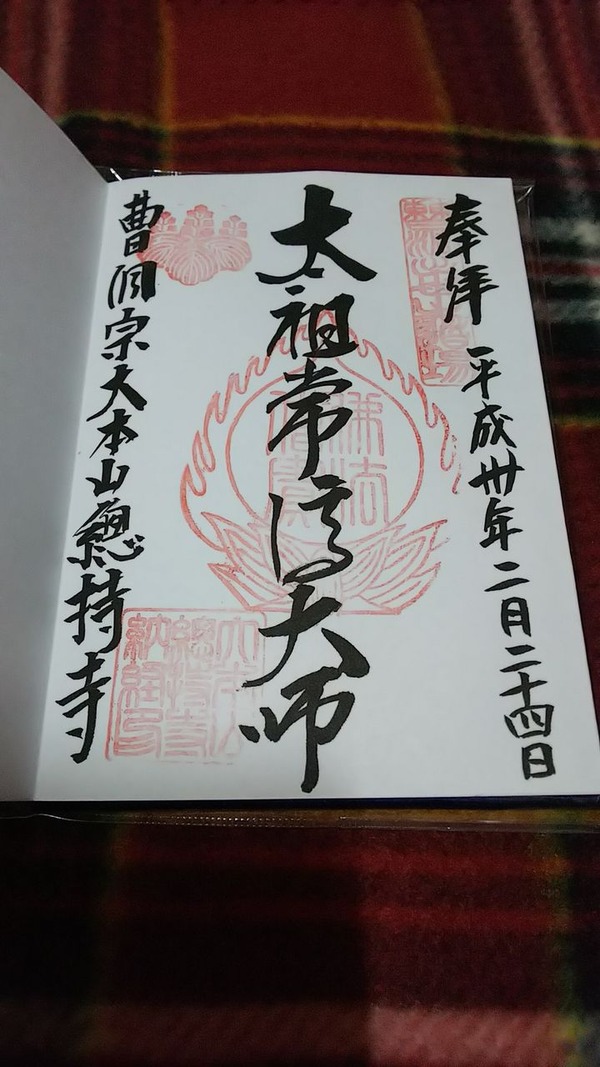 奉拝
平成卅年二月二十四日
太祖常済大師
曹洞宗大本山總持寺
大本山
總持寺
納経印